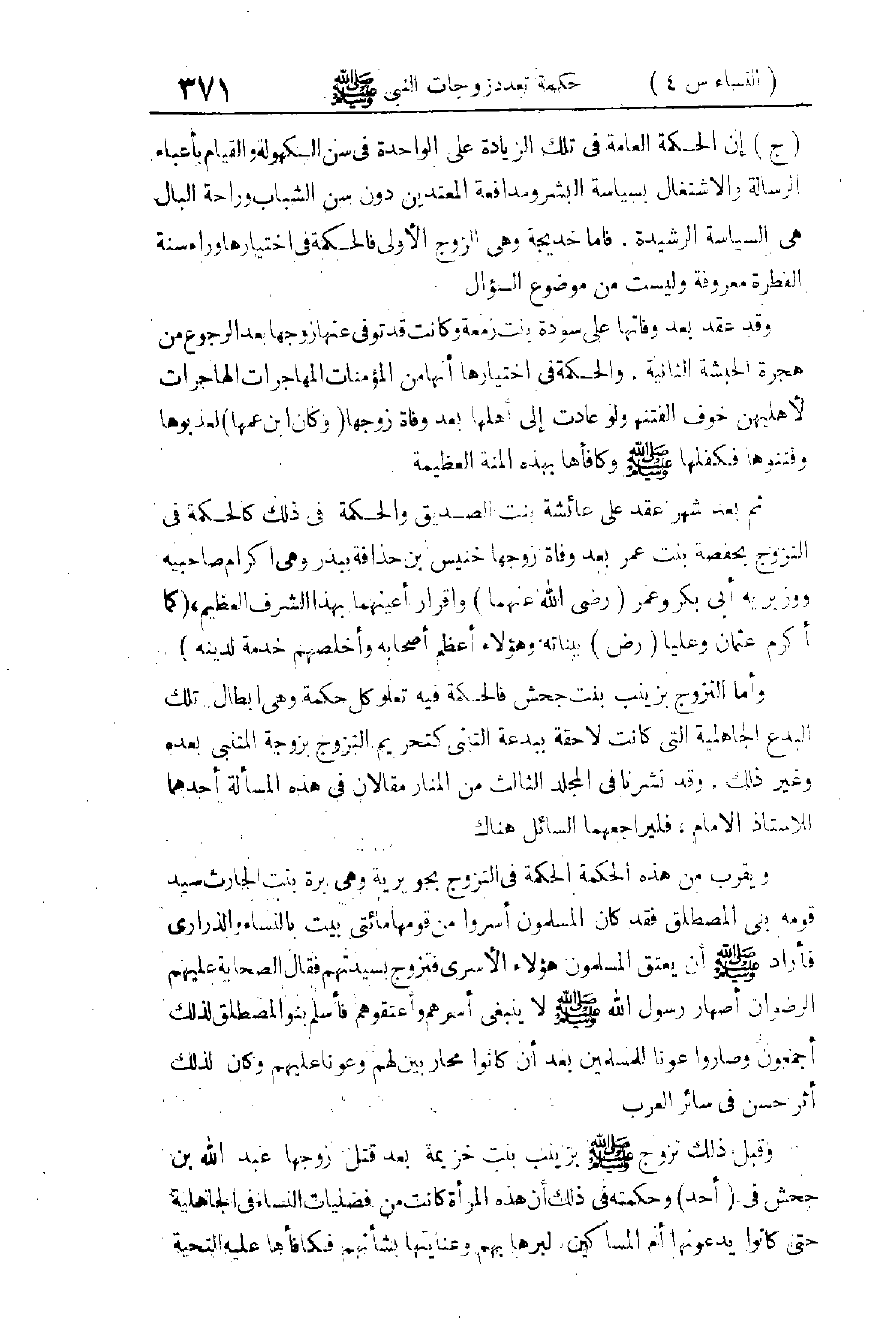 ( النساء س ٤ ) حكمة تعدد زوجات النبي ﷺ ٣٧١
( ج ) إن الحكمة العامة فى تلك الزيادة على الواحدة فى سن الكهولة والقيام بأعباء
الرسالة والاشتغال بسياسة البشر ومدافعة المعتدين دون سن الشباب وراحة البال
هى السياسة الرشيدة . فاما خديجة وهى الزوج الأولى فالحكمة فى اختيارها وراء سنة
الفطرة معروفة وليست من موضوع السؤال
وقد عقد بعد وفاتها على سودة بنت زمعة وكانت قد توفى عنها زوجها بعد الرجوع من
هجرة الحبشة الثانية . والحكمة فى اختيارها أنها من المؤمنات المهاجرات الهاجرات
لأهليهن خوف الفتنة ولو عادت إلى أهلها بعد وفاة زوجها ( وكان ابن عمها ) لعذبوها
وفتنوها فكفلها ﷺ وكافأها بهذه المنة العظيمة
ثم بعد شهر عقد على عائشة بنت الصديق والحكمة فى ذلك كالحكمة فى
التزوج بحفصة بنت عمر بعد وفاة زوجها خنيس بن حذافة ببدر وهى اكرام صاحبيه
ووزيريه أبى بكر وعمر ( رضى الله عنهما ) واقرار أعينهما بهذا الشرف العظيم، (كما
أكرم عثمان وعليا ( رض ) ببناته وهؤلاء أعظم أصحابه وأخلصهم خدمة لدينه ) .
وأما التزوج بزينب بنت جحش فالحكمة فيه تعلو كل حكمة وهى ابطال تلك
البدع الجاهلية التى كانت لاحقة ببدعة التبنى كتحريم التزوج بزوجة المتبنى بعده
وغير ذلك . وقد نشرنا فى المجلد الثالث من المنار مقالان فى هذه المسألة أحدهما
للاستاذ الامام ، فليراجعهما السائل هناك
ويقرب من هذه الحكمة الحكمة فى التزوج بجويرية وهى برة بنت الحارث سيد
قومه بنى المصطلق فقد كان المسلمون أسروا من قومها مائتى بيت بالنساء والذرارى
فأراد ﷺ أن يعتق المسلمون هؤلاء الأسرى فتزوج بسيدتهم فقال الصحابة عليهم
الرضوان أصهار رسول الله ﷺ لا ينبغى أسرهم وأعتقوهم فأسلم بنو المصطلق لذلك
أجمعون وصاروا عونا للمسلمين بعد أن كانوا محاربين لهم وعونا عليهم وكان لذلك
أثر حسن فى سائر العرب
وقبل ذلك تزوج ﷺ بزينب بنت خزيمة بعد قتل زوجها عبد الله بن
جحش فى ( أحد ) وحكمته فى ذلك أن هذه المرأة كانت من فضليات النساء فى الجاهلية
حتى كانوا يدعونها أم المساكين لبرها بهم وعنايتها بشأنهم فكافأها عليه التحية